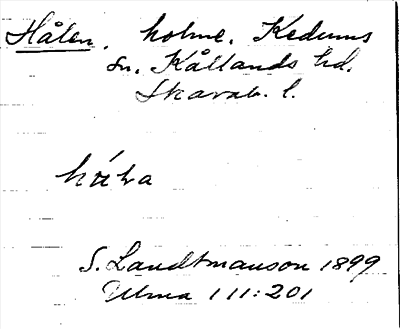 Hålen, holme. Kedums
sn. Kållands hd.
Skarab. l.
S. Landtmanson 1899
Ulma 111:201